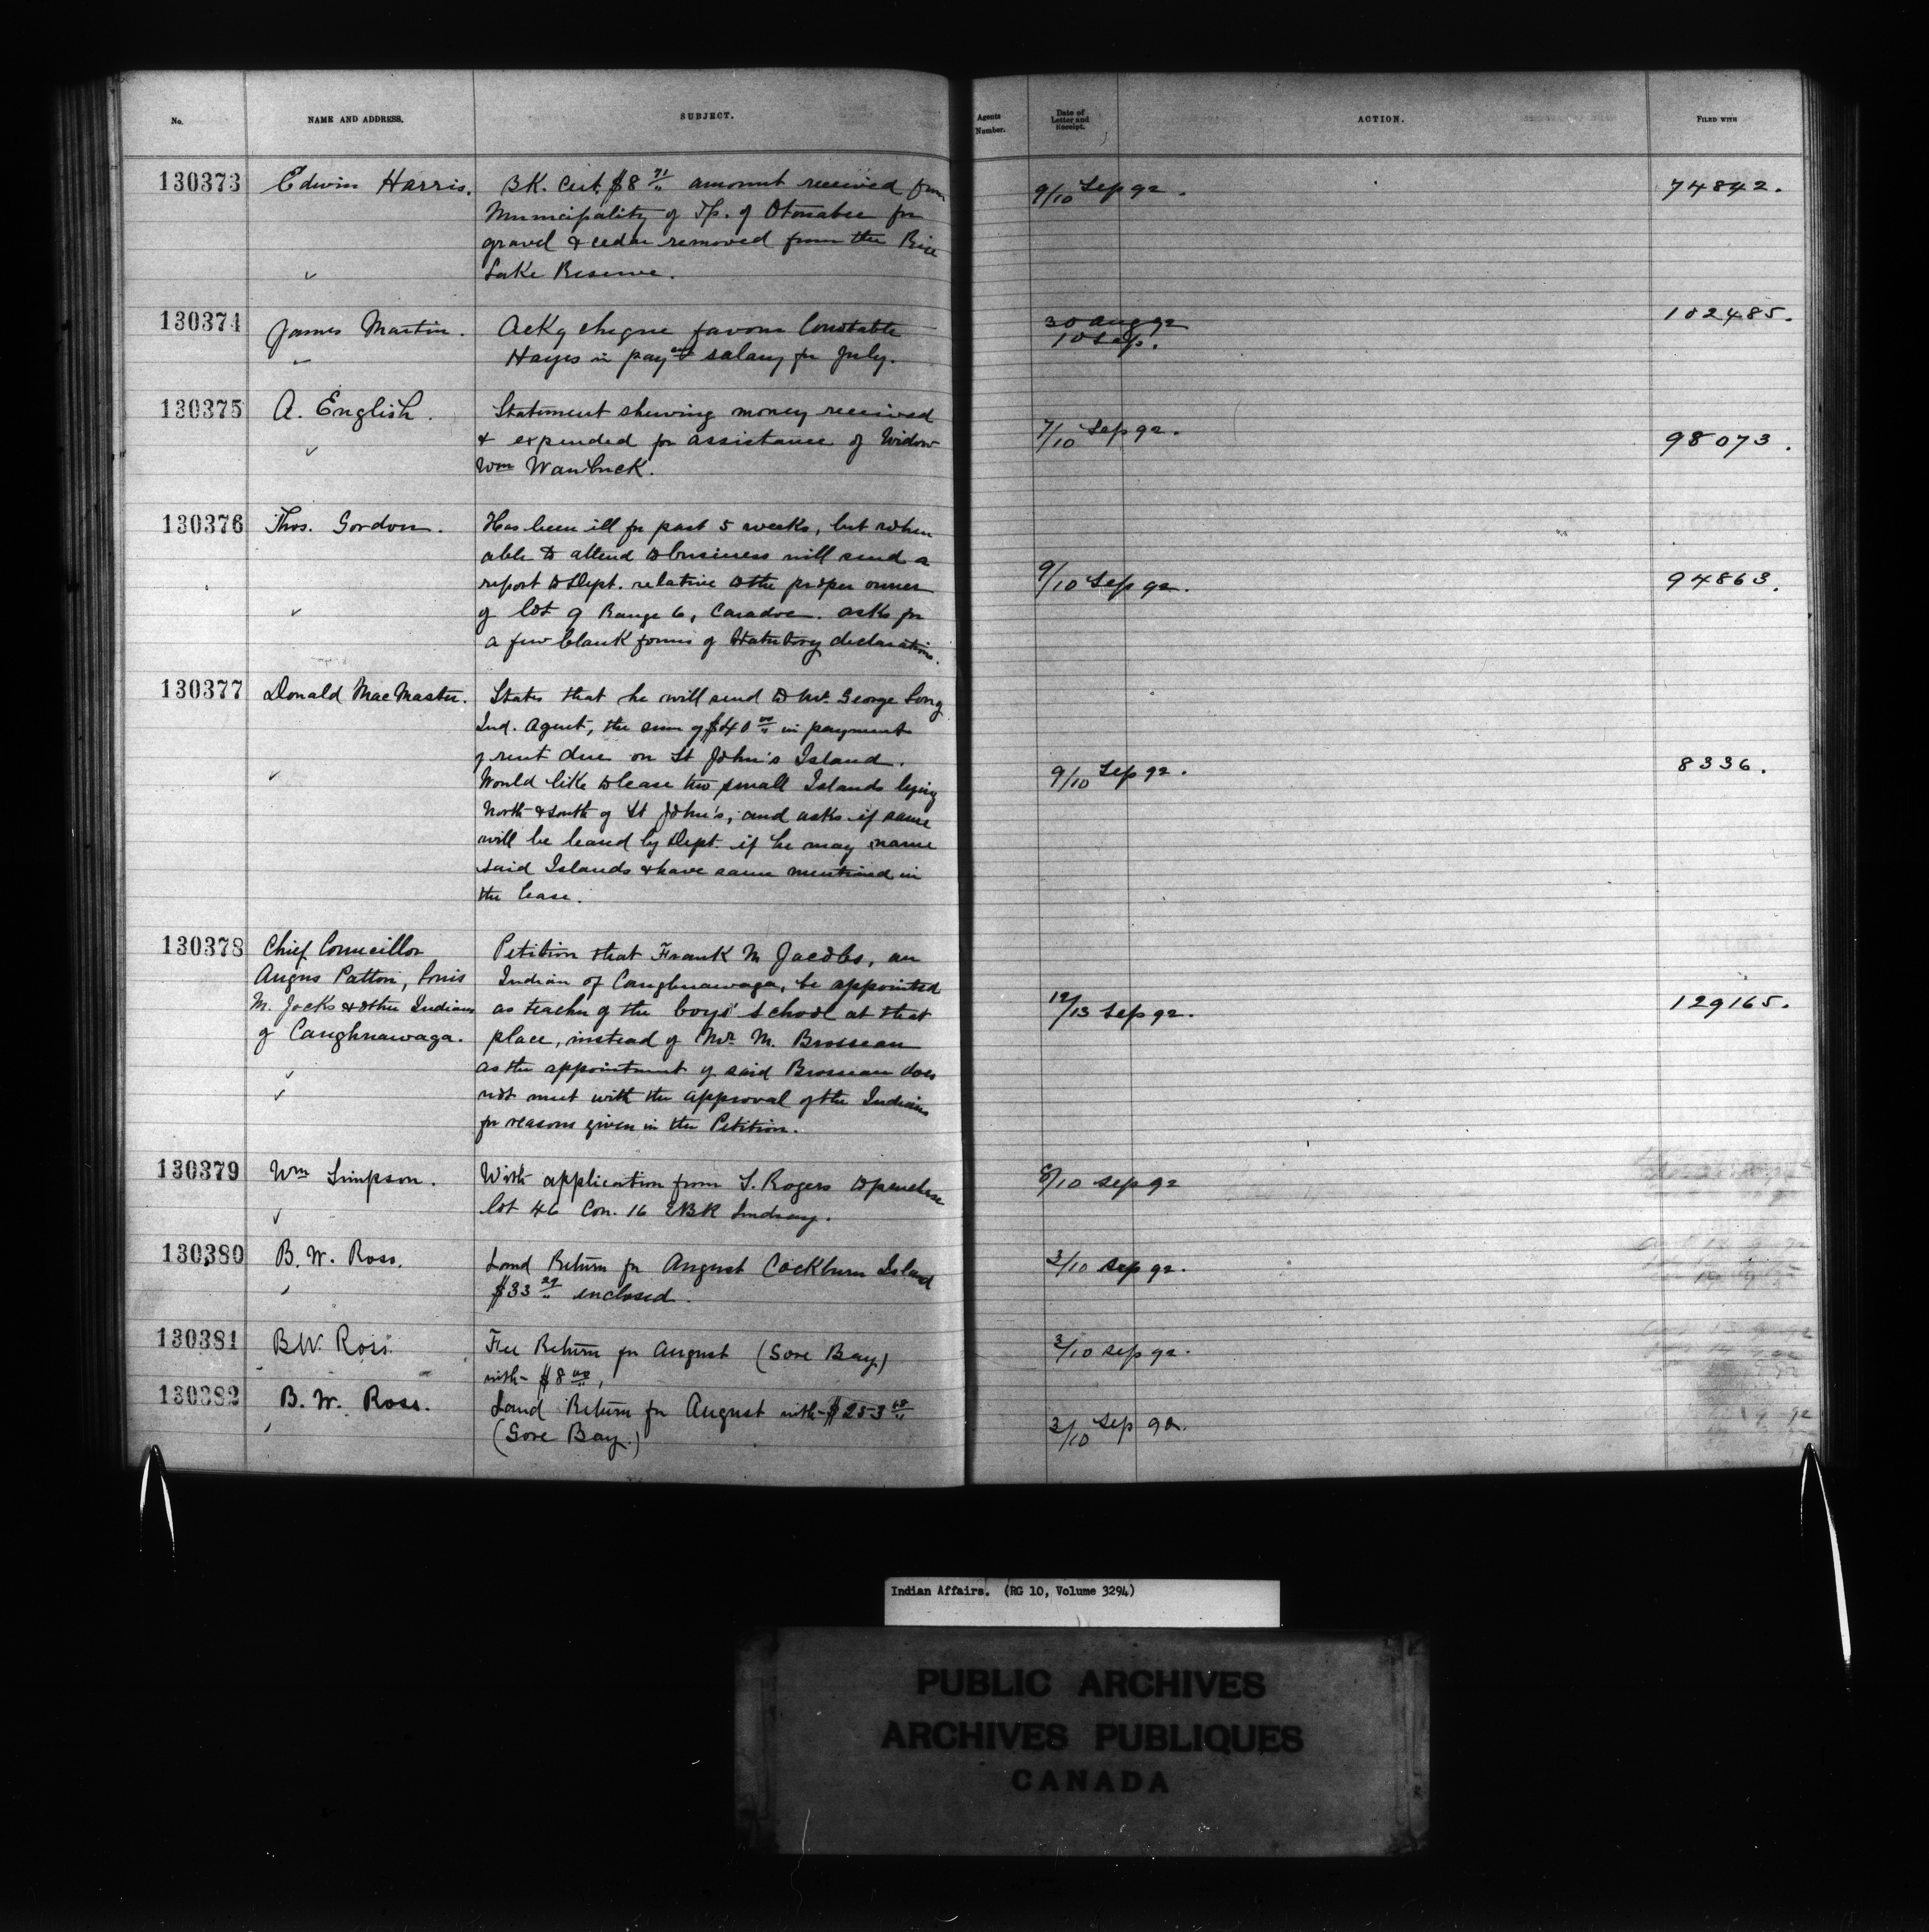 No. NAME AND ADDRESS. SUBJECT. Agents Number. Date of Letter and Receipt. ACTION. FILED WITH
130373 Edwin Harris. BK. Cert. $8 71/" amount received from 9/10 Sep 92. 74842.
Municipality of Tp. of Otonabee for
gravel & cedar removed from the Rice
Lake Reserve.
130374 James Martin. Ackg cheque favour Constable 30 Aug 92 102485.
Hayes in payt of salary for July. 10 Sep.
130375 A. English. Statement shewing money received
& expended for assistance of Widow 7/10 Sep 92. 98073.
Wm Wawbuck.
130376 Thos. Gordon. Has been ill for past 5 weeks, but when
able to attend to business will send a
report to Dept. relative to the proper owner 9/10 Sep 92. 94863.
of lot 9 Range 6, Caradoc. asks for
a few blank forms of Statutory declarations.
130377 Donald MacMaster. States that he will send to Mr. George Long
Ind. Agent, the sum of $40 00/" in payment
of rent due on St John's Island.
Would like to lease two small Islands lying 9/10 Sep 92. 8336.
North & South of St John's, and asks if same
will be leased by Dept. if he may name
said Islands & have same mentioned in
the lease.
130378 Chief Councillor Petition that Frank M Jacobs, an
Angus Patton, Louis Indian of Caughnawaga, be appointed
M. Jocks & other Indians as teacher of the boys' school at that 12/13 Sep 92. 129165.
of Caughnawaga. place, instead of Mr. M. Brosseau
as the appointment of said Brosseau does
not meet with the approval of the Indians
for reasons given in the Petition.
130379 Wm Simpson. With application from S. Rogers to purchase 8/10 Sep 92
lot 46 Con. 16 EBR Lindsay.
130380 B. W. Ross. Land Return for August Cockburn Island 3/10 Sep 92.
$33 29/" enclosed.
130381 B.W. Ross. Fee Return for August (Gore Bay) 3/10 Sep 92.
with $8 00/",
130382 B. W. Ross. Land Return for August with $253 68/"
(Gore Bay.) 3/10 Sep 92.
Indian Affairs. (RG 10, Volume 3294)
PUBLIC ARCHIVES
ARCHIVES PUBLIQUES
CANADA